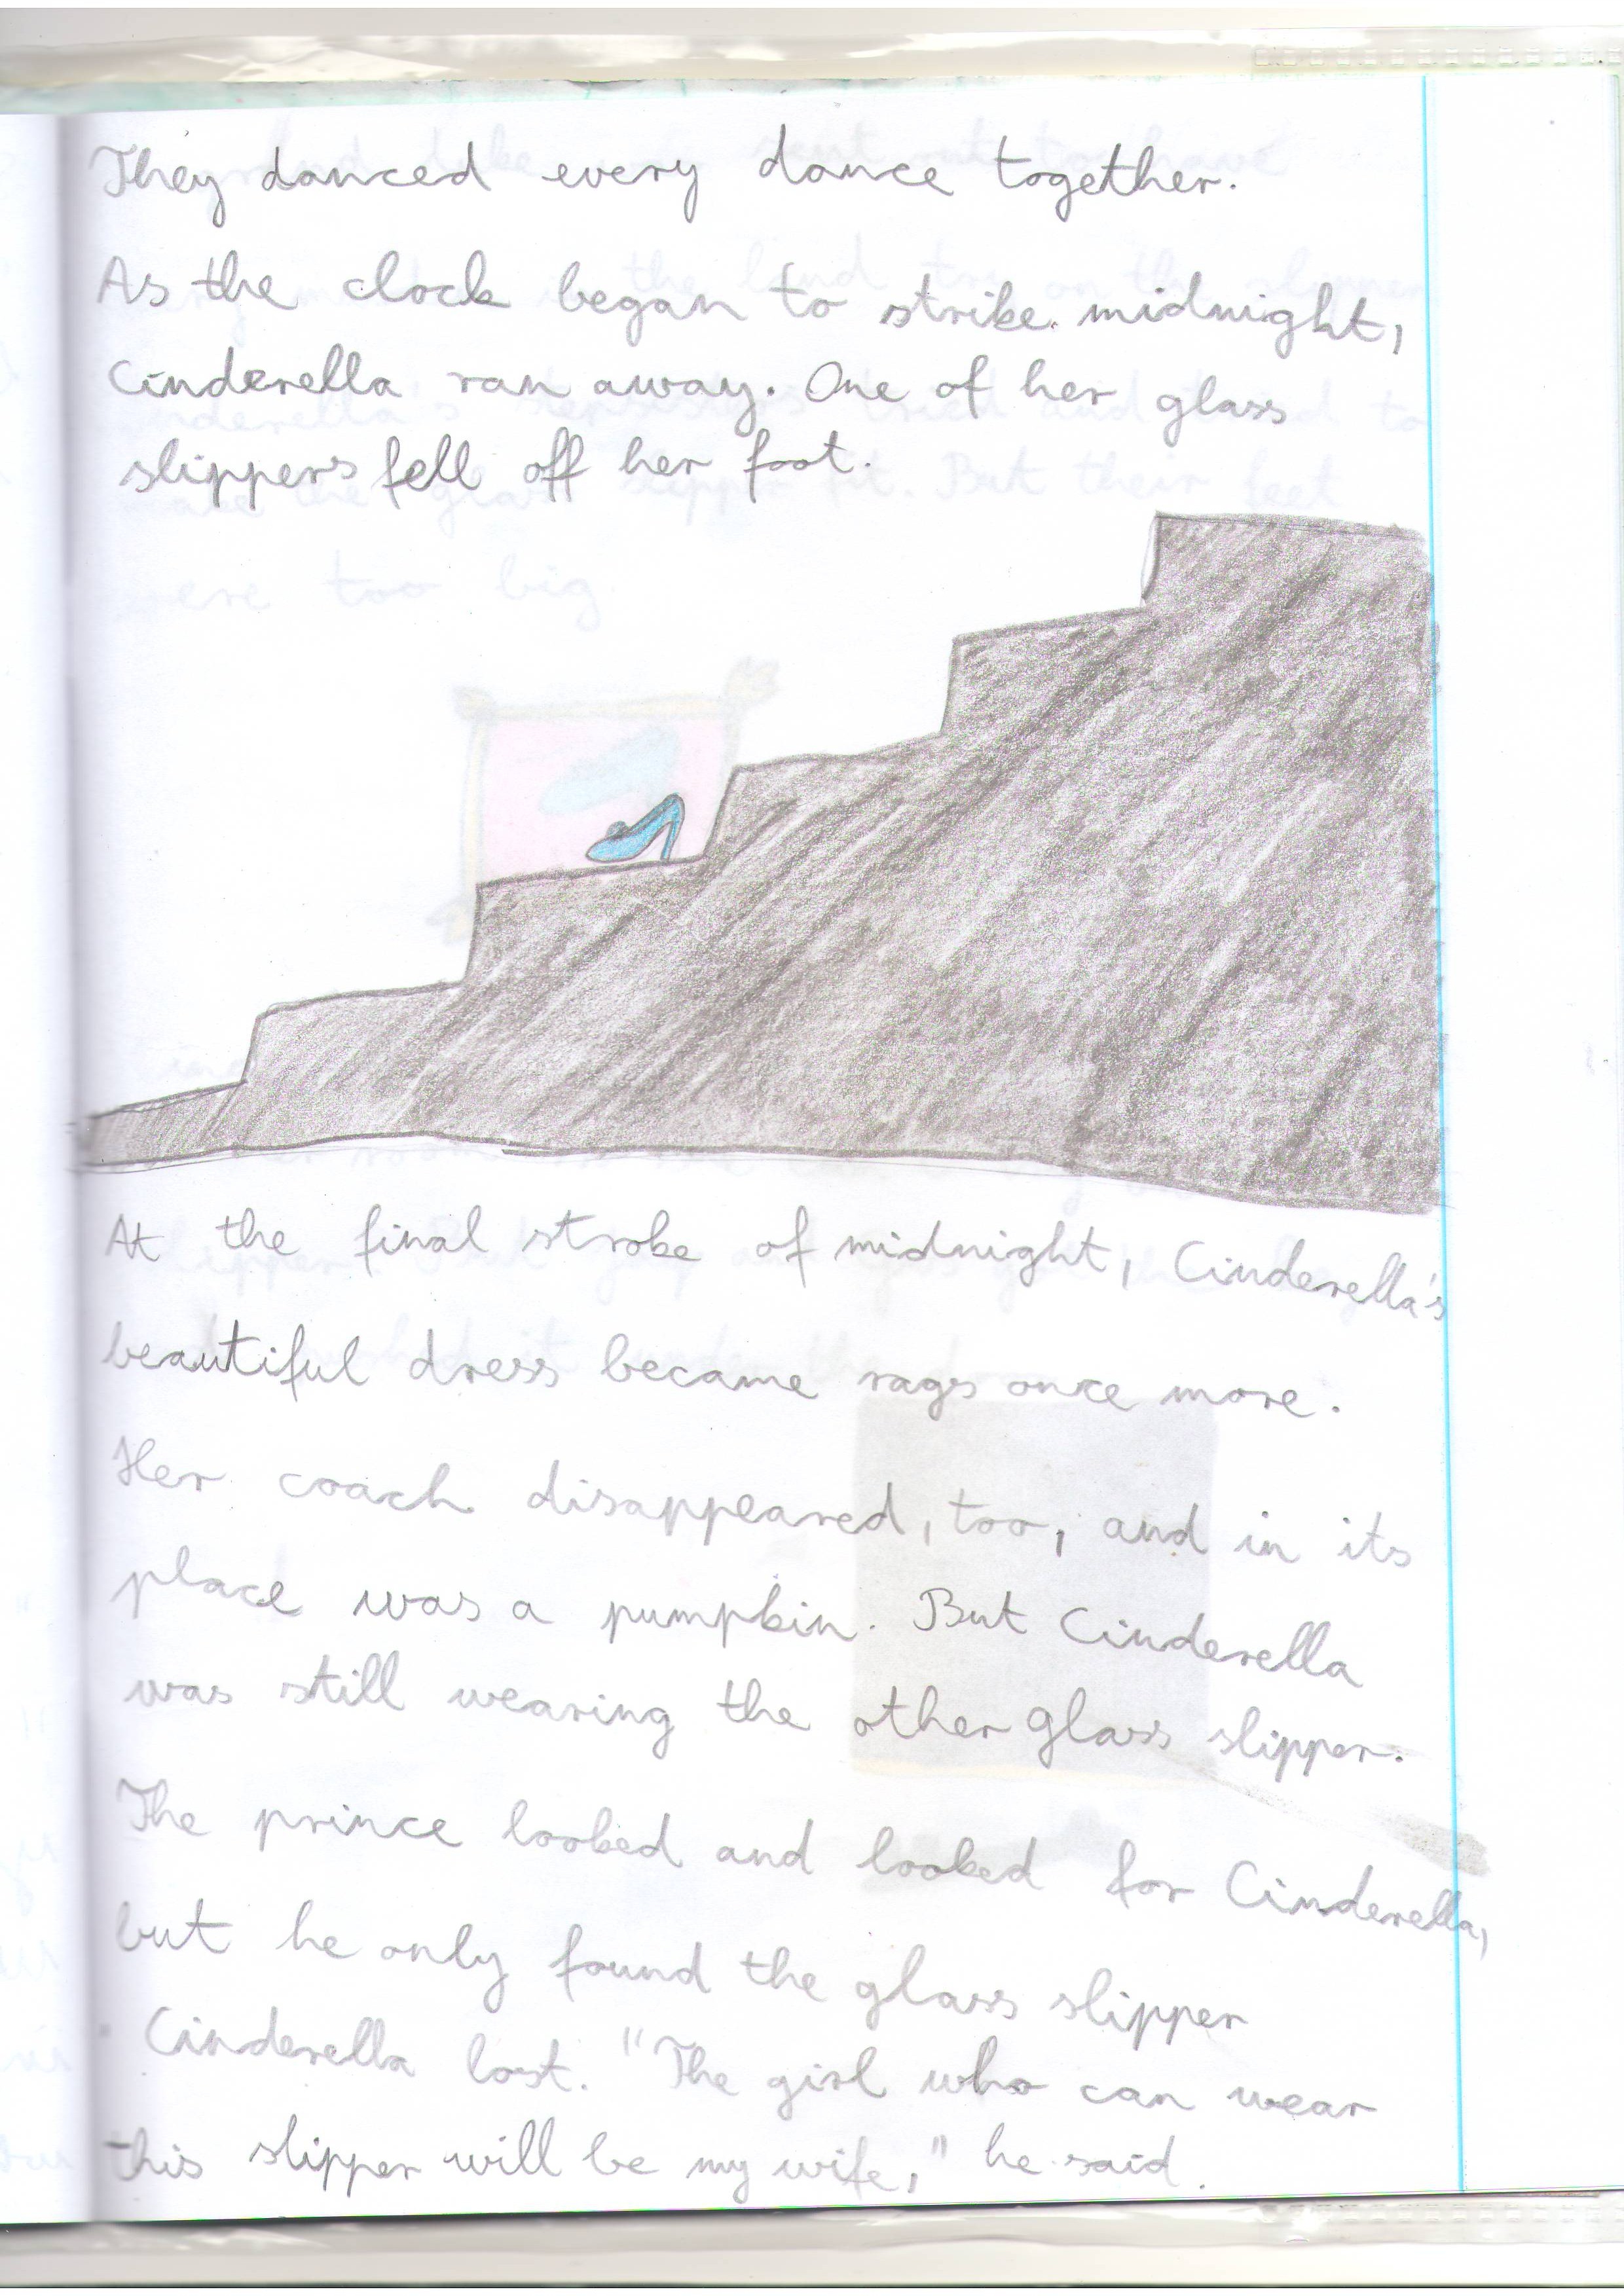 They danced every dance together.
As the clock began to strike midnight,
Cinderella ran away. One of her glass
slippers fell off her foot.
At the final stroke of midnight, Cinderella's
beautiful dress became rags once more.
Her coach disappeared, too, and in its
place was a pumpkin. But Cinderella
was still wearing the other glass slipper.
The prince looked and looked for Cinderella,
but he only found the glass slipper
Cinderella lost. "The girl who can wear
this slipper will be my wife," he said.